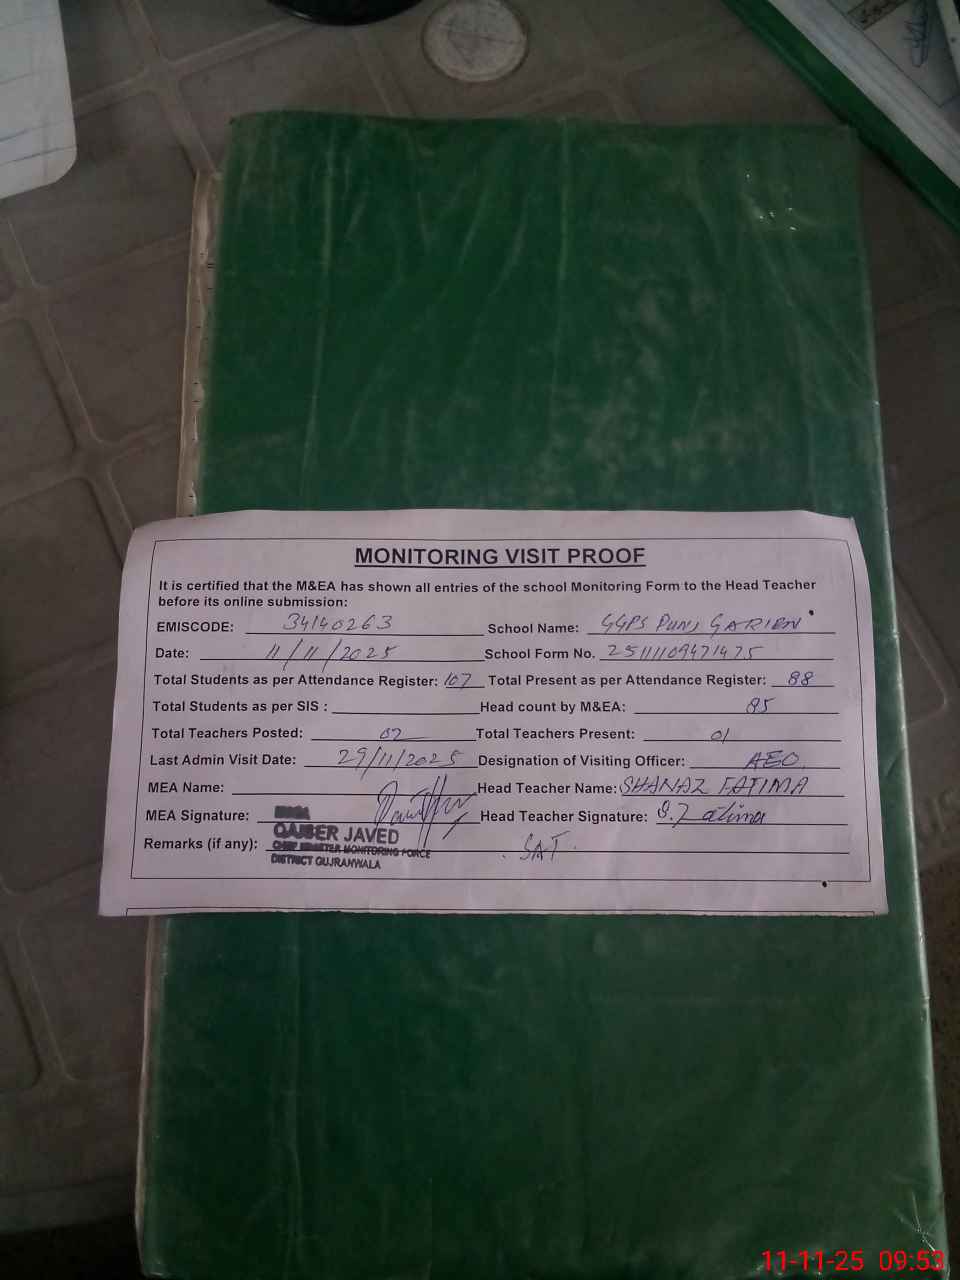 MONITORING VISIT PROOF
It is certified that the M&EA has shown all entries of the school Monitoring Form to the Head Teacher
before its online submission:
EMISCODE: 34140263 School Name: GGPS PUNJ GARIEN
Date: 11/11/2025 School Form No. 25111109471475
Total Students as per Attendance Register: 107 Total Present as per Attendance Register: 88
Total Students as per SIS : Head count by M&EA: 85
Total Teachers Posted: 02 Total Teachers Present: 01
Last Admin Visit Date: 29/11/2025 Designation of Visiting Officer: AEO
MEA Name: Head Teacher Name: SHANAZ FATIMA
MEA Signature: Head Teacher Signature: S. Fatima
QAISER JAVED
Remarks (if any): SAT
CHIEF MINISTER MONITORING FORCE
DISTRICT GUJRANWALA
11-11-25 09:53